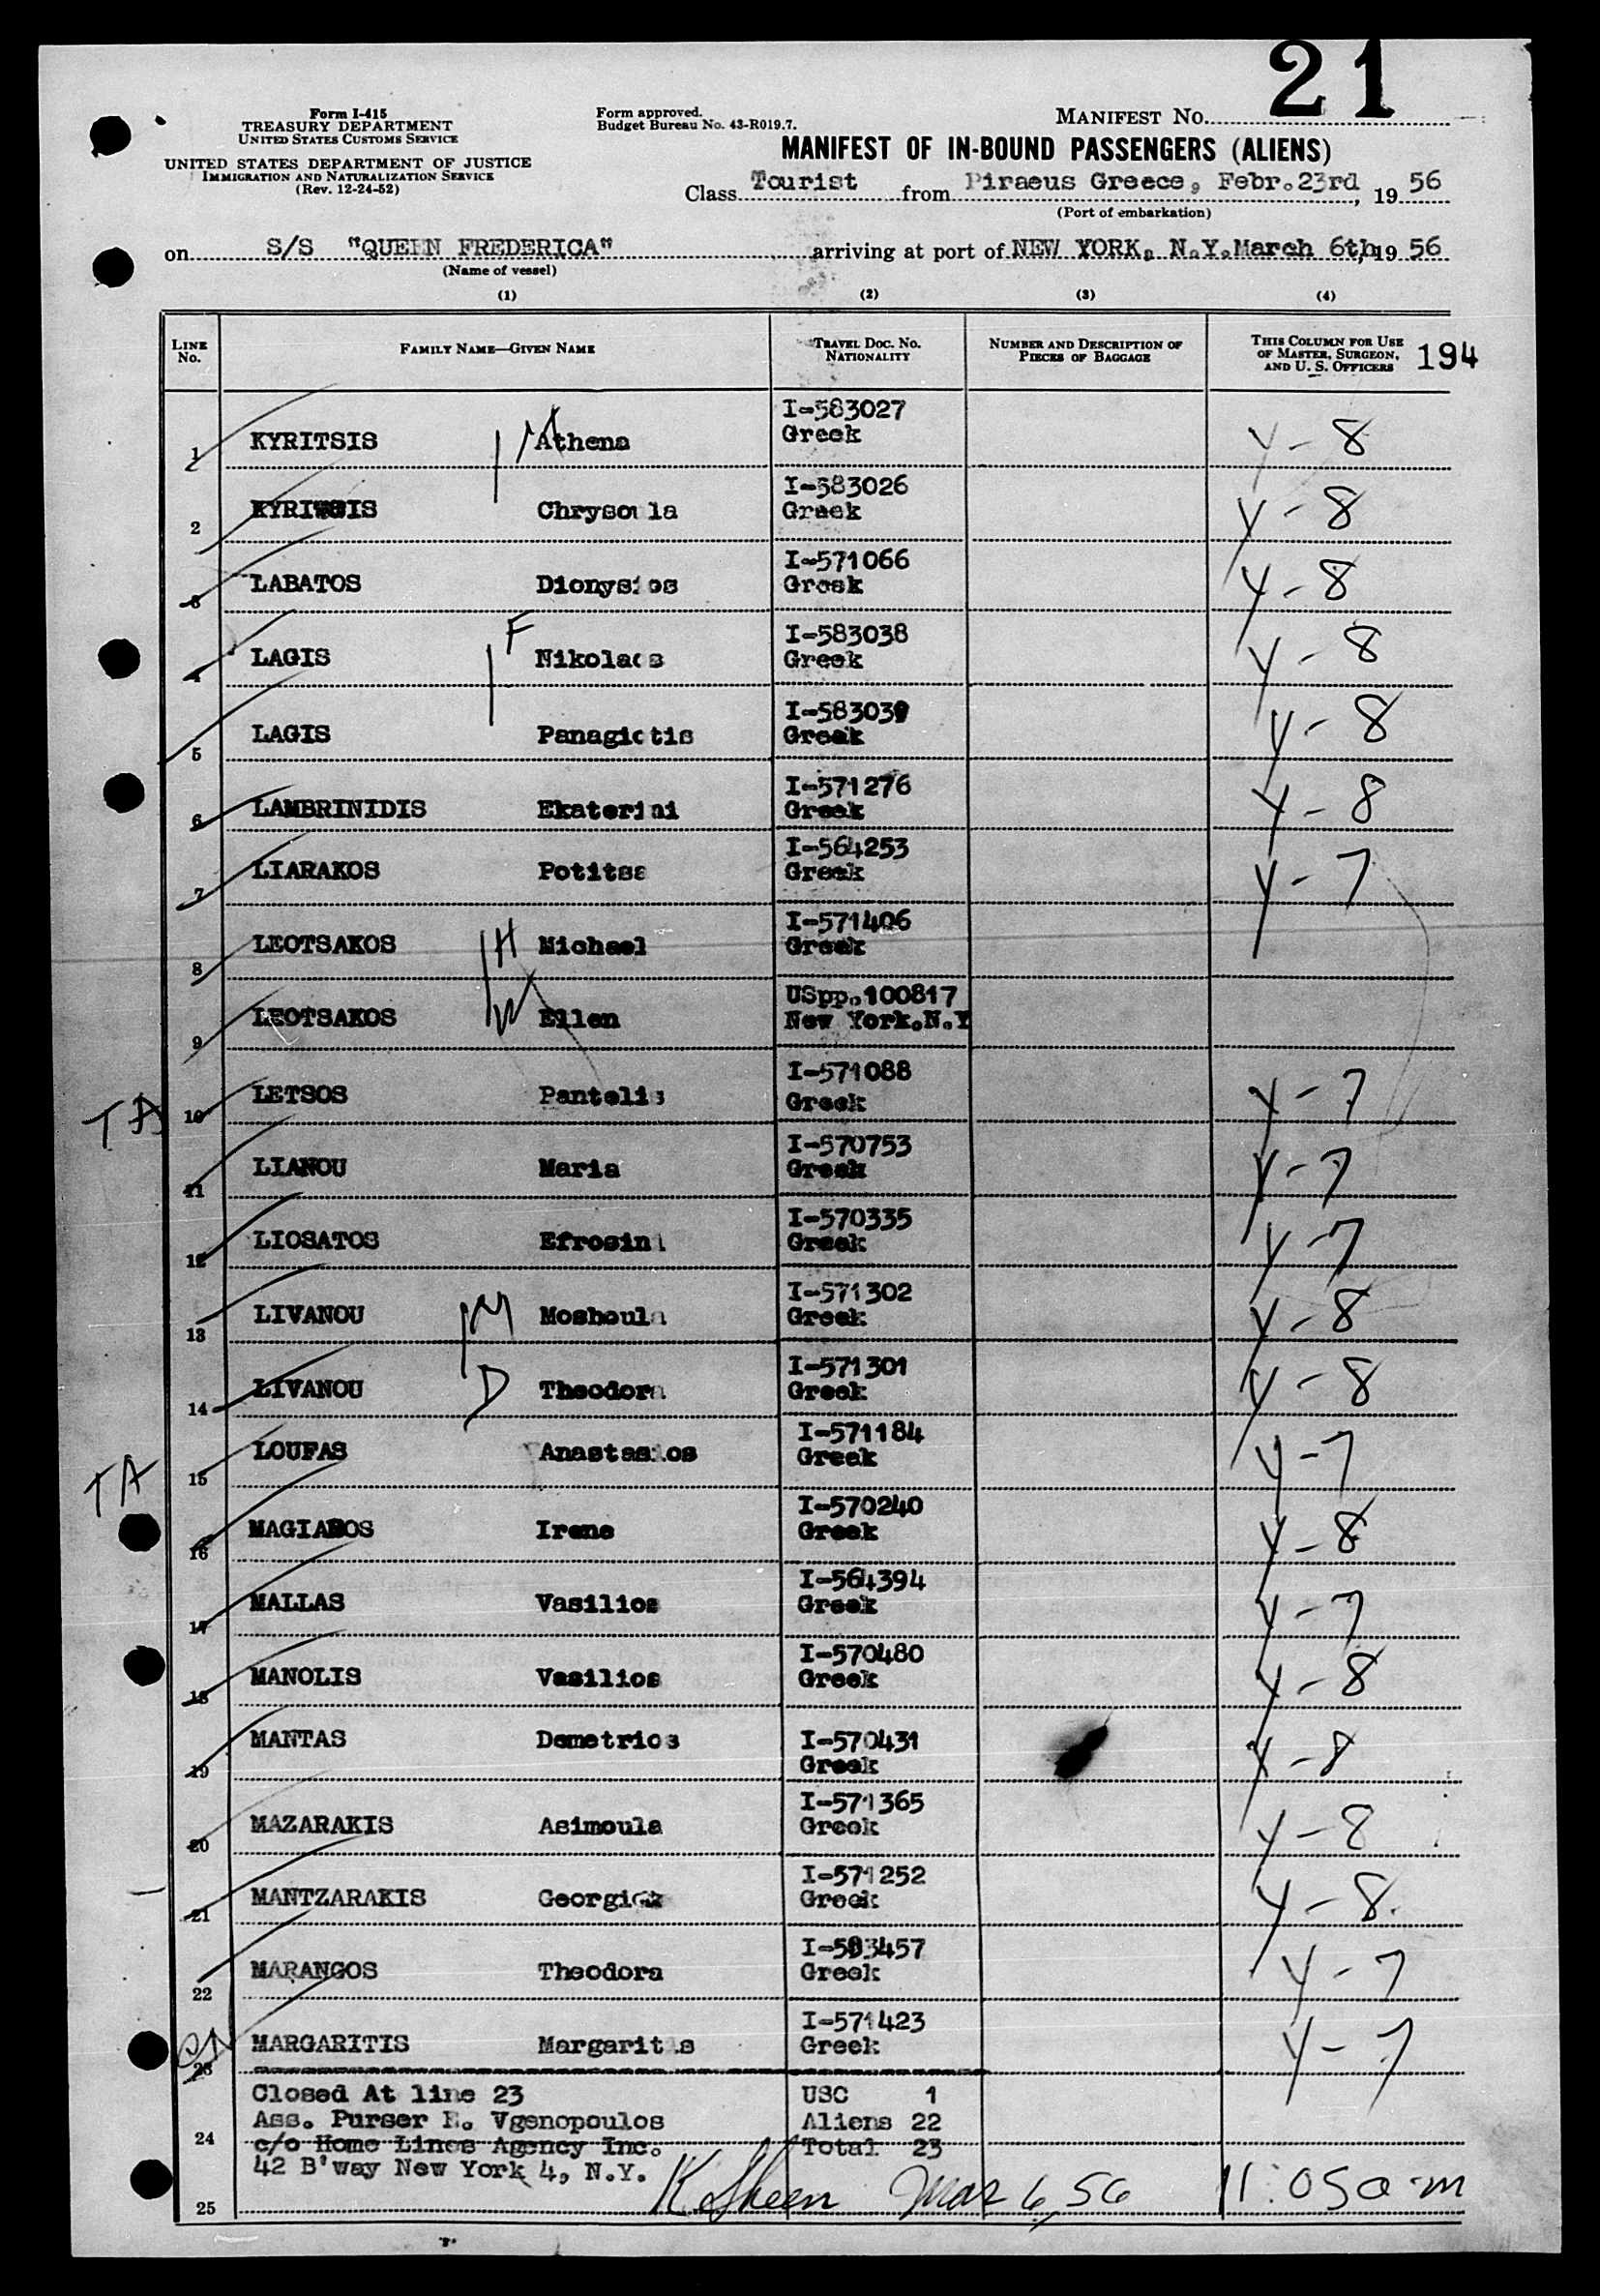 21
Form I-415
TREASURY DEPARTMENT
UNITED STATES CUSTOMS SERVICE
UNITED STATES DEPARTMENT OF JUSTICE
IMMIGRATION AND NATURALIZATION SERVICE
(Rev. 12-24-52)
Form approved.
Budget Bureau No. 43-R019.7.
MANIFEST No.
MANIFEST OF IN-BOUND PASSENGERS (ALIENS)
Class Tourist from Piraeus Greece, Febr.23rd, 19 56
(Port of embarkation)
on S/S "QUEEN FREDERICA" arriving at port of NEW YORK, N.Y. March 6th, 19 56
(Name of vessel)
(1) (2) (3) (4)
LINE No. FAMILY NAME—GIVEN NAME TRAVEL DOC. No. NATIONALITY NUMBER AND DESCRIPTION OF PIECES OF BAGGAGE THIS COLUMN FOR USE OF MASTER, SURGEON, AND U. S. OFFICERS 194
1 KYRITSIS M Athena I-583027 Greek Y-8
2 KYRITSIS Chrysoula I-583026 Greek Y-8
3 LABATOS Dionysios I-571066 Greek Y-8
4 LAGIS F Nikolaos I-583038 Greek Y-8
5 LAGIS Panagiotis I-583039 Greek Y-8
6 LAMBRINIDIS Ekaterini I-571276 Greek Y-8
7 LIARAKOS Potitsa I-564253 Greek Y-7
8 LEOTSAKOS H Michael I-571406 Greek
9 LEOTSAKOS W Ellen USpp.100817 New York.N.Y
TA 10 LETSOS Pantelis I-571088 Greek Y-7
11 LIANOU Maria I-570753 Greek Y-7
12 LIOSATOS Efrosini I-570335 Greek Y-7
13 LIVANOU M Moshoula I-571302 Greek Y-8
14 LIVANOU D Theodora I-571301 Greek Y-8
TA 15 LOUFAS Anastasios I-571184 Greek Y-7
16 Irene I-570240 Greek Y-8
17 MALLAS Vasilios I-564394 Greek Y-7
18 MANOLIS Vasilios I-570480 Greek Y-8
19 MANTAS Demetrios I-570431 Greek Y-8
20 MAZARAKIS Asimoula I-571365 Greek Y-8
21 MANTZARAKIS I-571252 Greek Y-8
22 MARANGOS Theodora Greek Y-7
23 MARGARITIS Margaritis I-571423 Greek Y-7
Closed At line 23 USC 1
Ass. Purser E. Vgenopoulos Aliens 22
24 c/o Home Lines Agency Inc. Total 23
42 B'way New York 4, N.Y.
25 K Sheen Mar 6, 56 11:05 a.m